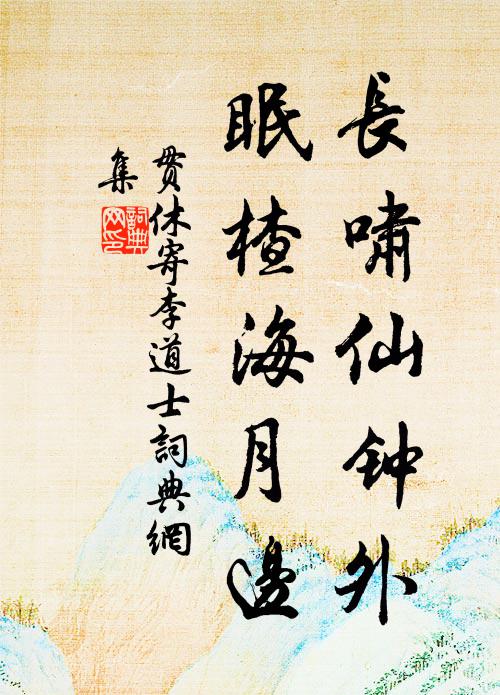 長嘯仙钟外
眠楂海月邊
贯休寄李道士詞典網
集
詞典網印